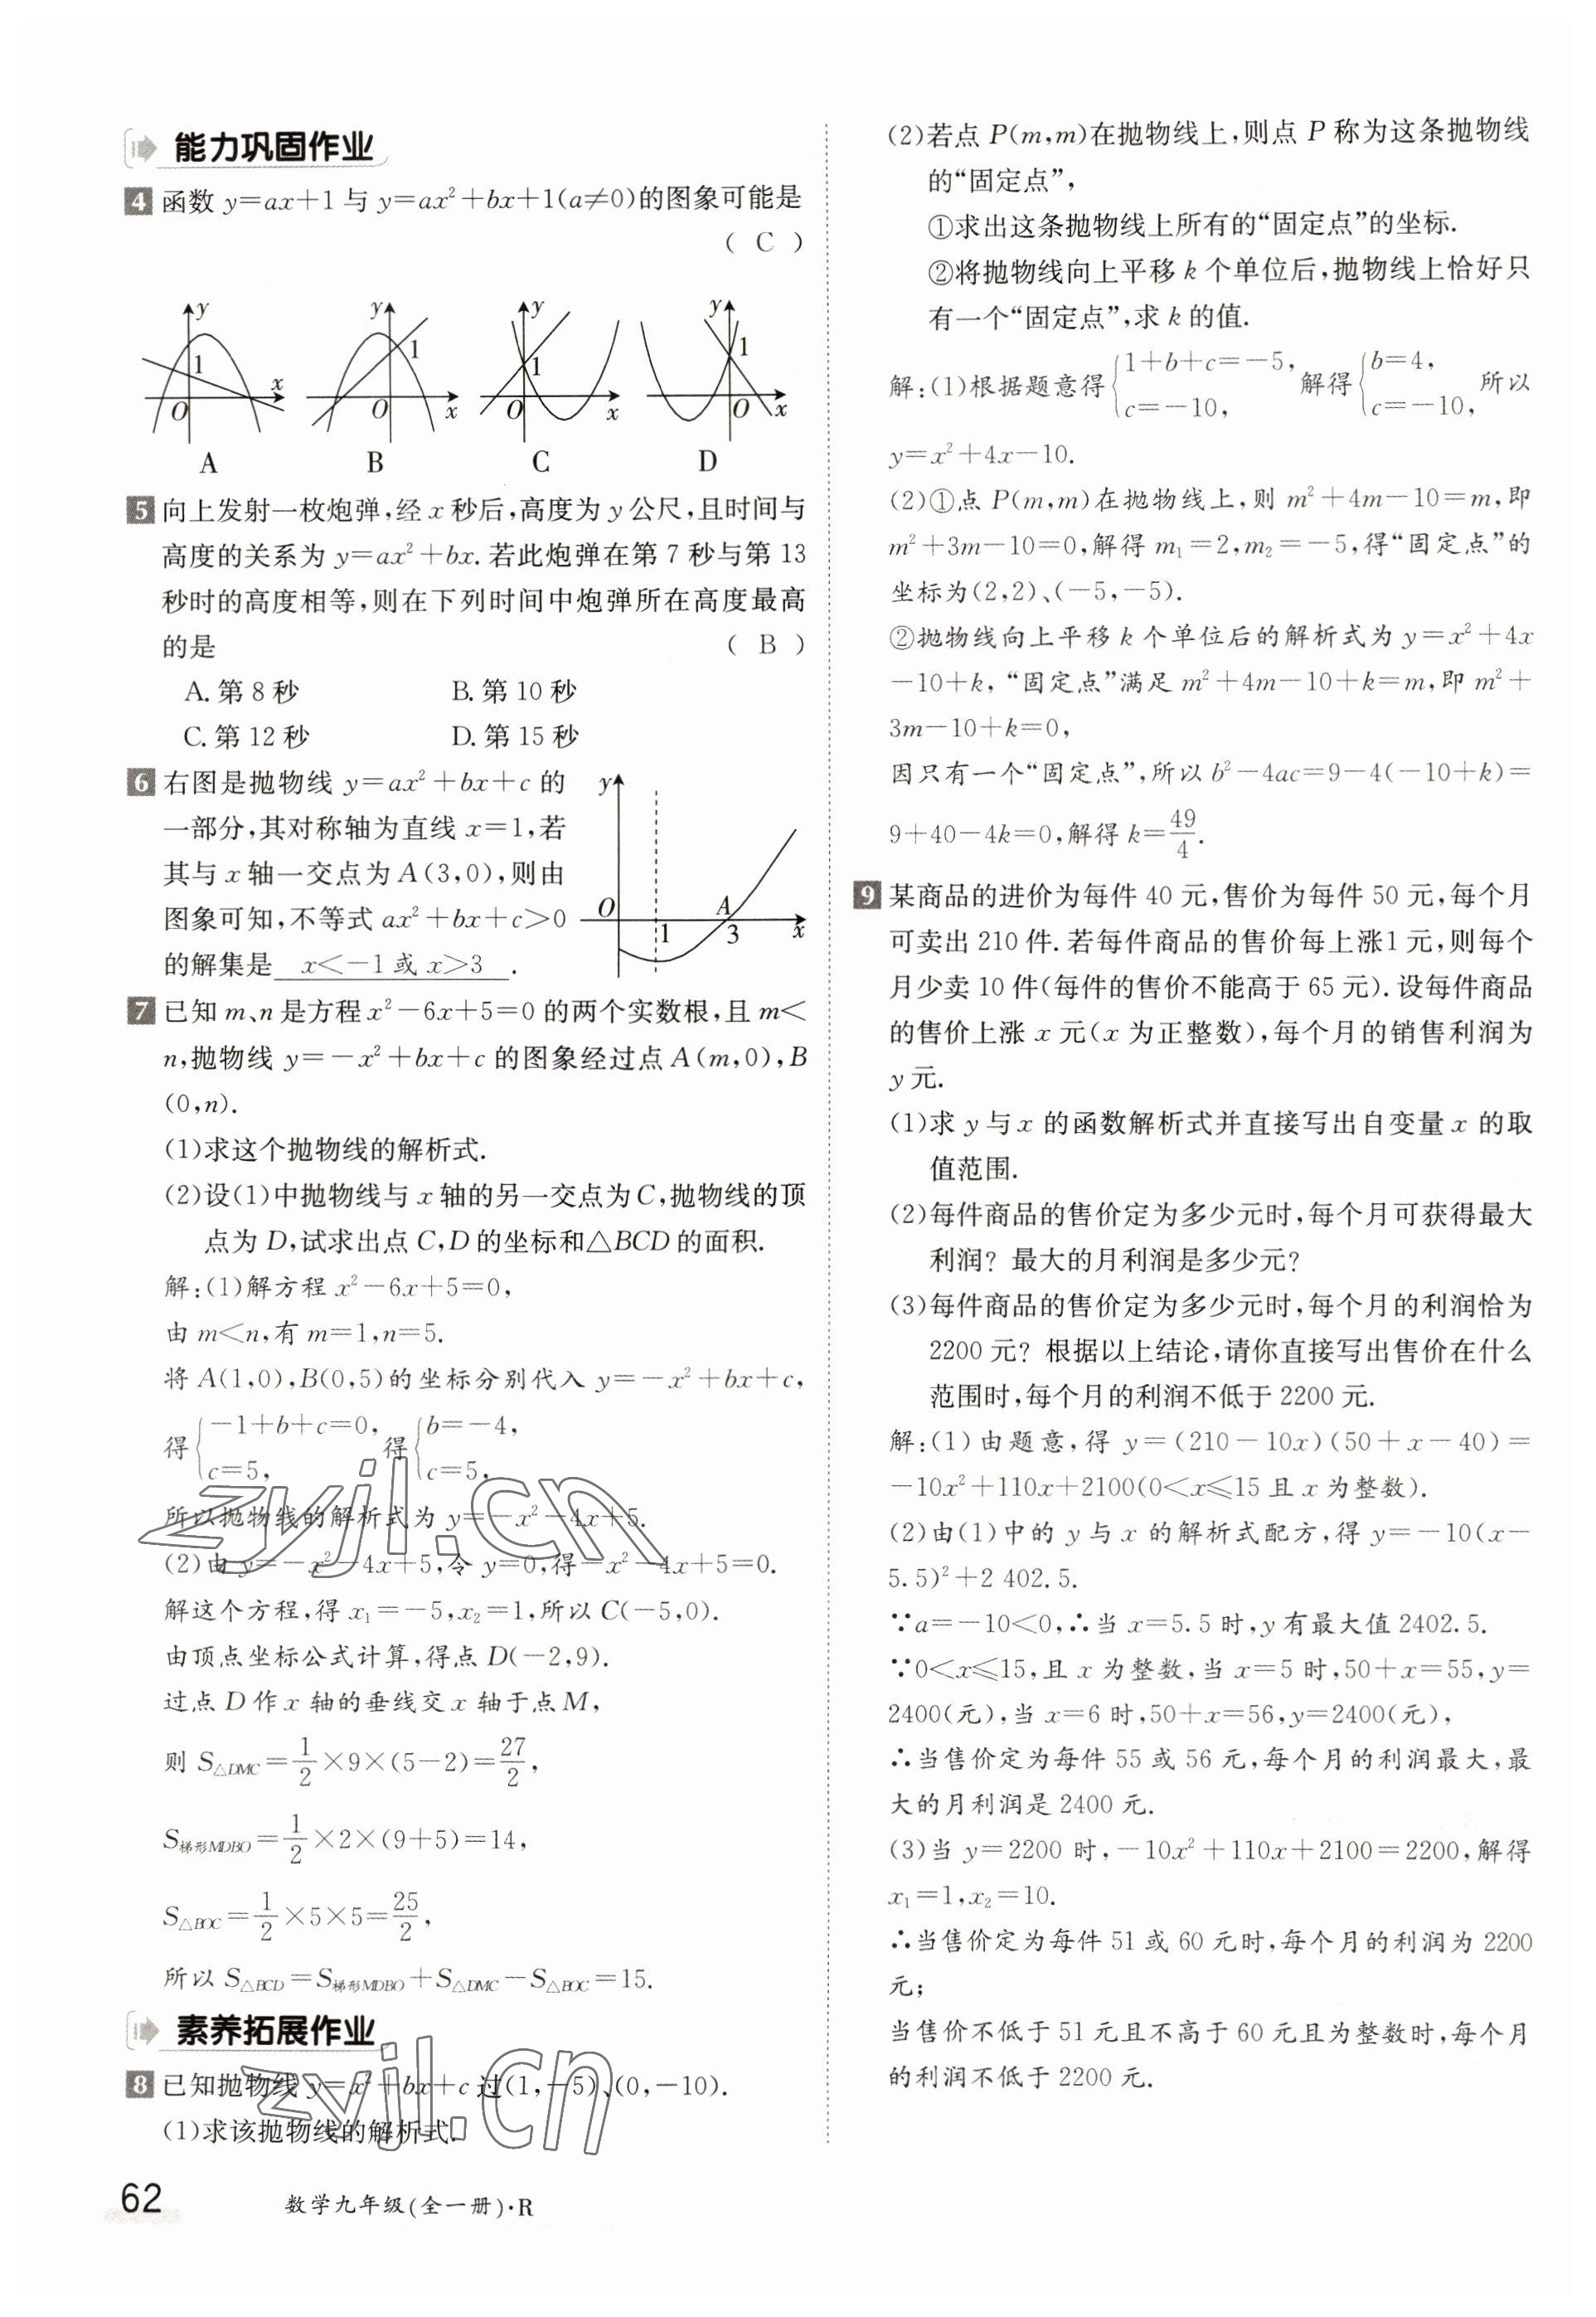 能力巩固作业
4 函数 y=ax+1 与 y=ax²+bx+1(a≠0)的图象可能是
( C )
y 1 O x
y 1 O x
y 1 O x
y 1 O x
A B C D
5 向上发射一枚炮弹,经 x 秒后,高度为 y 公尺,且时间与
高度的关系为 y=ax²+bx. 若此炮弹在第 7 秒与第 13
秒时的高度相等,则在下列时间中炮弹所在高度最高
的是 ( B )
A. 第 8 秒 B. 第 10 秒
C. 第 12 秒 D. 第 15 秒
6 右图是抛物线 y=ax²+bx+c 的
一部分,其对称轴为直线 x=1,若
其与 x 轴一交点为 A(3,0),则由
图象可知,不等式 ax²+bx+c>0
的解集是 x<-1 或 x>3 .
y O 1 A 3 x
7 已知 m、n 是方程 x²-6x+5=0 的两个实数根,且 m<
n,抛物线 y=-x²+bx+c 的图象经过点 A(m,0),B
(0,n).
(1)求这个抛物线的解析式.
(2)设(1)中抛物线与 x 轴的另一交点为 C,抛物线的顶
点为 D,试求出点 C,D 的坐标和△BCD 的面积.
解:(1)解方程 x²-6x+5=0,
由 m<n,有 m=1,n=5.
将 A(1,0),B(0,5)的坐标分别代入 y=-x²+bx+c,
得{-1+b+c=0, c=5, 得{b=-4, c=5,
所以抛物线的解析式为 y=-x²-4x+5.
(2)由 y=-x²-4x+5,令 y=0,得-x²-4x+5=0.
解这个方程,得 x₁=-5,x₂=1,所以 C(-5,0).
由顶点坐标公式计算,得点 D(-2,9).
过点 D 作 x 轴的垂线交 x 轴于点M,
则 S△DMC=1/2×9×(5-2)=27/2,
S梯形MDBO=1/2×2×(9+5)=14,
S△BOC=1/2×5×5=25/2,
所以 S△BCD=S梯形MDBO+S△DMC-S△BOC=15.
素养拓展作业
8 已知抛物线 y=x²+bx+c 过(1,-5)、(0,-10).
(1)求该抛物线的解析式.
(2)若点 P(m,m)在抛物线上,则点 P 称为这条抛物线
的“固定点”,
①求出这条抛物线上所有的“固定点”的坐标.
②将抛物线向上平移 k 个单位后,抛物线上恰好只
有一个“固定点”,求 k 的值.
解:(1)根据题意得{1+b+c=-5, c=-10, 解得{b=4, c=-10, 所以
y=x²+4x-10.
(2)①点 P(m,m)在抛物线上,则 m²+4m-10=m,即
m²+3m-10=0,解得 m₁=2,m₂=-5,得“固定点”的
坐标为(2,2)、(-5,-5).
②抛物线向上平移 k 个单位后的解析式为 y=x²+4x
-10+k,“固定点”满足 m²+4m-10+k=m,即 m²+
3m-10+k=0,
因只有一个“固定点”,所以 b²-4ac=9-4(-10+k)=
9+40-4k=0,解得 k=49/4.
9 某商品的进价为每件 40 元,售价为每件 50 元,每个月
可卖出 210 件. 若每件商品的售价每上涨1 元,则每个
月少卖 10 件(每件的售价不能高于 65 元). 设每件商品
的售价上涨 x 元(x 为正整数),每个月的销售利润为
y 元.
(1)求 y 与 x 的函数解析式并直接写出自变量 x 的取
值范围.
(2)每件商品的售价定为多少元时,每个月可获得最大
利润? 最大的月利润是多少元?
(3)每件商品的售价定为多少元时,每个月的利润恰为
2200 元? 根据以上结论,请你直接写出售价在什么
范围时,每个月的利润不低于 2200 元.
解:(1)由题意,得 y=(210-10x)(50+x-40)=
-10x²+110x+2100(0<x≤15 且 x 为整数).
(2)由(1)中的 y 与 x 的解析式配方,得 y=-10(x-
5.5)²+2 402.5.
∵a=-10<0,∴当 x=5.5 时,y 有最大值 2402.5.
∵0<x≤15,且 x 为整数,当 x=5 时,50+x=55,y=
2400(元),当 x=6 时,50+x=56,y=2400(元),
∴当售价定为每件 55 或 56 元,每个月的利润最大,最
大的月利润是 2400 元.
(3)当 y=2200 时,-10x²+110x+2100=2200,解得
x₁=1,x₂=10.
∴当售价定为每件 51 或 60 元时,每个月的利润为 2200
元;
当售价不低于 51 元且不高于 60 元且为整数时,每个月
的利润不低于 2200 元.
zyjl.cn
zyjl.cn
62 数学九年级(全一册)·R